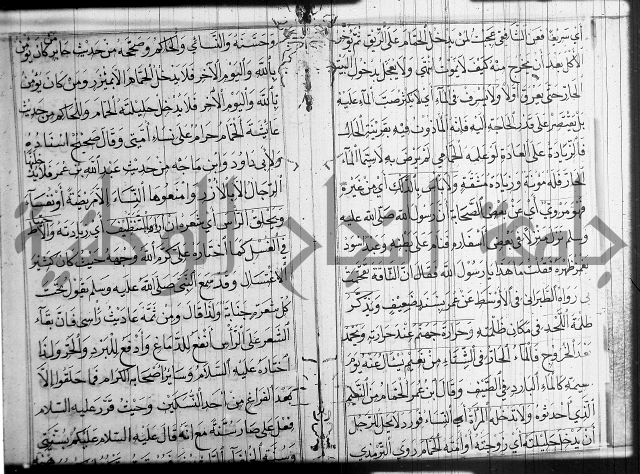 أي سريعا فعن الشافعي عجبت لمن يدخل الحمام على الريق ثم يؤخر
الأكل بعد أن يخرج منه كيف لا يموت ولا يعجل بدخول البيت
الحار حتى يعرق أولا ولا يسرف في الماء أي لا يكثر صب الماء عليه
بل يقتصر على قدر الحاجة إليه فإنه المأذون فيه بقرينة الحال
فالزيادة على العادة لو علمه الحمامي لم يرض به لا سيما الماء
الحار فله مؤنة وزيادة مشقة ولا بأس بالدلك أي من غيره
فهو مروي أي عن بعض الصحابة أن رسول الله صلى الله عليه
وسلم نزل منزلا في بعض أسفاره فنام على بطنه وعبد أسود
يغمز ظهره فقلت ما هذا يا رسول الله فقال إن الناقة تقحمت
بي رواه الطبراني في الأوسط عن عمر بسند ضعيف ويتذكر
ظلمة اللحد في مكان ظلمته وحرارة جهنم عند حرارته ويحمد
عند الخروج والماء الحار في الشتاء من نعيم يسأل عنه يوم
كالماء البارد في الصيف وقال ابن عمر الحمام من النعيم
الذي أحدثوه ولا تدخله المرأة أي النساء فورد لا يحل للرجل
أن يدخل حليلته أي زوجته وأمته الحمام روى الترمذي
وحسنه والنسائي والحاكم وصححه من حديث جابر من كان يؤمن
بالله واليوم الآخر فلا يدخل الحمام إلا بمئزر ومن كان يؤمن
بالله واليوم الآخر فلا يدخل حليلته الحمام وللحاكم من حديث
عائشة الحمام حرام على نساء أمتي وقال صحيح إسناده
ولأبي داود وابن ماجه من حديث عبد الله بن عمر فلا يدخلنها
الرجال إلا بالأزر وامنعوها النساء إلا مريضة أو نفساء
ويحلق الرأس أي شعره إن أراد التنظف أي زيادته
في الغسل كما اختاره علي كرم الله وجهه حيث كان كثير
الاغتسال وقد سمع النبي صلى الله عليه وسلم يقول تحت
كل شعرة جنابة ولذا قال ومن ثمة عاديت رأسي فإن بقاء
الشعر على الرأس أنفع للدماغ وأدفع للبرد والحر ولذا
اختاره عليه السلام وسائر أصحابه الكرام فما حلقوا إلا
بعد الفراغ من أحد النسكين وحيث قرر عليه السلام
فعل علي صار سنة مع أنه قال عليه السلام عليكم بسنتي
جامعة النجاح الوطنية